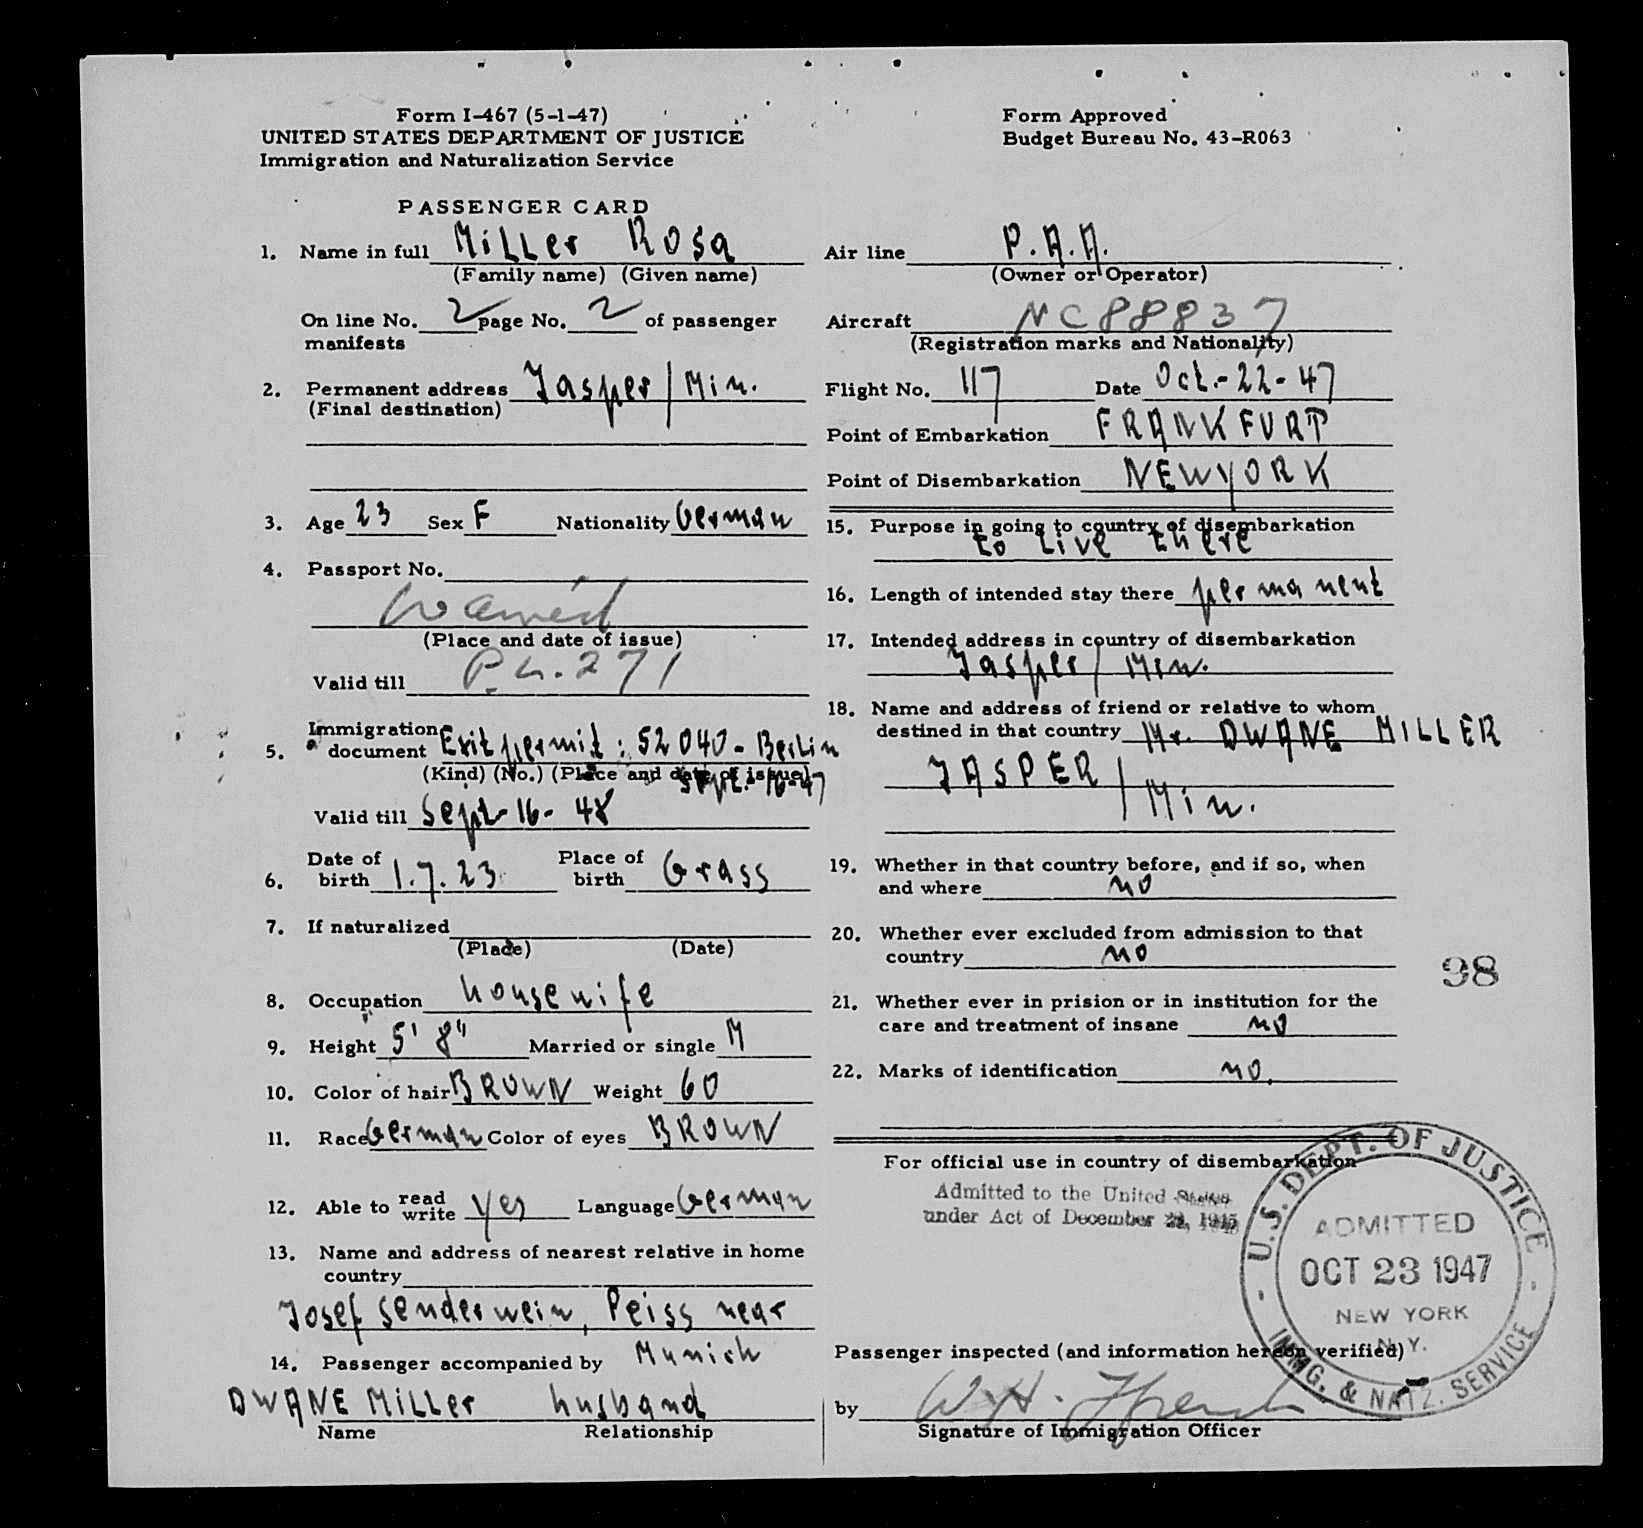 Form I-467 (5-1-47)
UNITED STATES DEPARTMENT OF JUSTICE
Immigration and Naturalization Service
Form Approved
Budget Bureau No. 43-R063
PASSENGER CARD
1. Name in full Miller Rosa
(Family name) (Given name)
On line No. 2 page No. 2 of passenger
manifests
2. Permanent address Jasper / Min.
(Final destination)
3. Age 23 Sex F Nationality German
4. Passport No.
Waived
(Place and date of issue)
Valid till P.L. 271
5. Immigration document Exit permit: 52040 - Berlin
(Kind) (No.) (Place and date of issue)
Sept. 16-47
Valid till Sept-16-48
6. Date of birth 1.7.23 Place of birth Grass
7. If naturalized
(Place) (Date)
8. Occupation housewife
9. Height 5' 8" Married or single M
10. Color of hair BROWN Weight 60
11. Race German Color of eyes BROWN
12. Able to read write yes Language German
13. Name and address of nearest relative in home
country
Josef Senderwein, Peiss near
Munich
14. Passenger accompanied by
DWANE MILLer husband
Name Relationship
Air line P.A.A.
(Owner or Operator)
Aircraft NC88837
(Registration marks and Nationality)
Flight No. 117 Date Oct.-22-47
Point of Embarkation FRANKFURT
Point of Disembarkation NEWYORK
15. Purpose in going to country of disembarkation
to live there
16. Length of intended stay there permanent
17. Intended address in country of disembarkation
Jasper / Min.
18. Name and address of friend or relative to whom
destined in that country Mr. DWANE MILLER
JASPER / Min.
19. Whether in that country before, and if so, when
and where no
20. Whether ever excluded from admission to that
country no
21. Whether ever in prision or in institution for the
care and treatment of insane no
22. Marks of identification no.
98
For official use in country of disembarkation
Admitted to the United States
under Act of December 28, 1945
U.S. DEPT. OF JUSTICE
ADMITTED
OCT 23 1947
NEW YORK
N.Y.
IMMG. & NATZ. SERVICE
Passenger inspected (and information hereon verified)
by W.H.
Signature of Immigration Officer